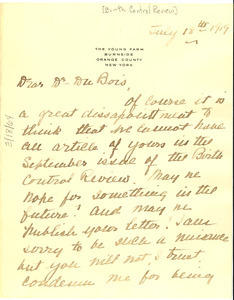 [Birth Control Review]
July 18th 1919
THE YOUNG FARM
BURNSIDE
ORANGE COUNTY
NEW YORK
Dear Dr. Du Bois,
Of course it is
a great dissapointment to
think that we cannot have
an article of yours in the
September issue of the Birth
Control Review. May we
hope for something in the
future? And may we
publish your letter? I am
sorry to be such a nuisance
but you will not, I trust,
condemn me for being